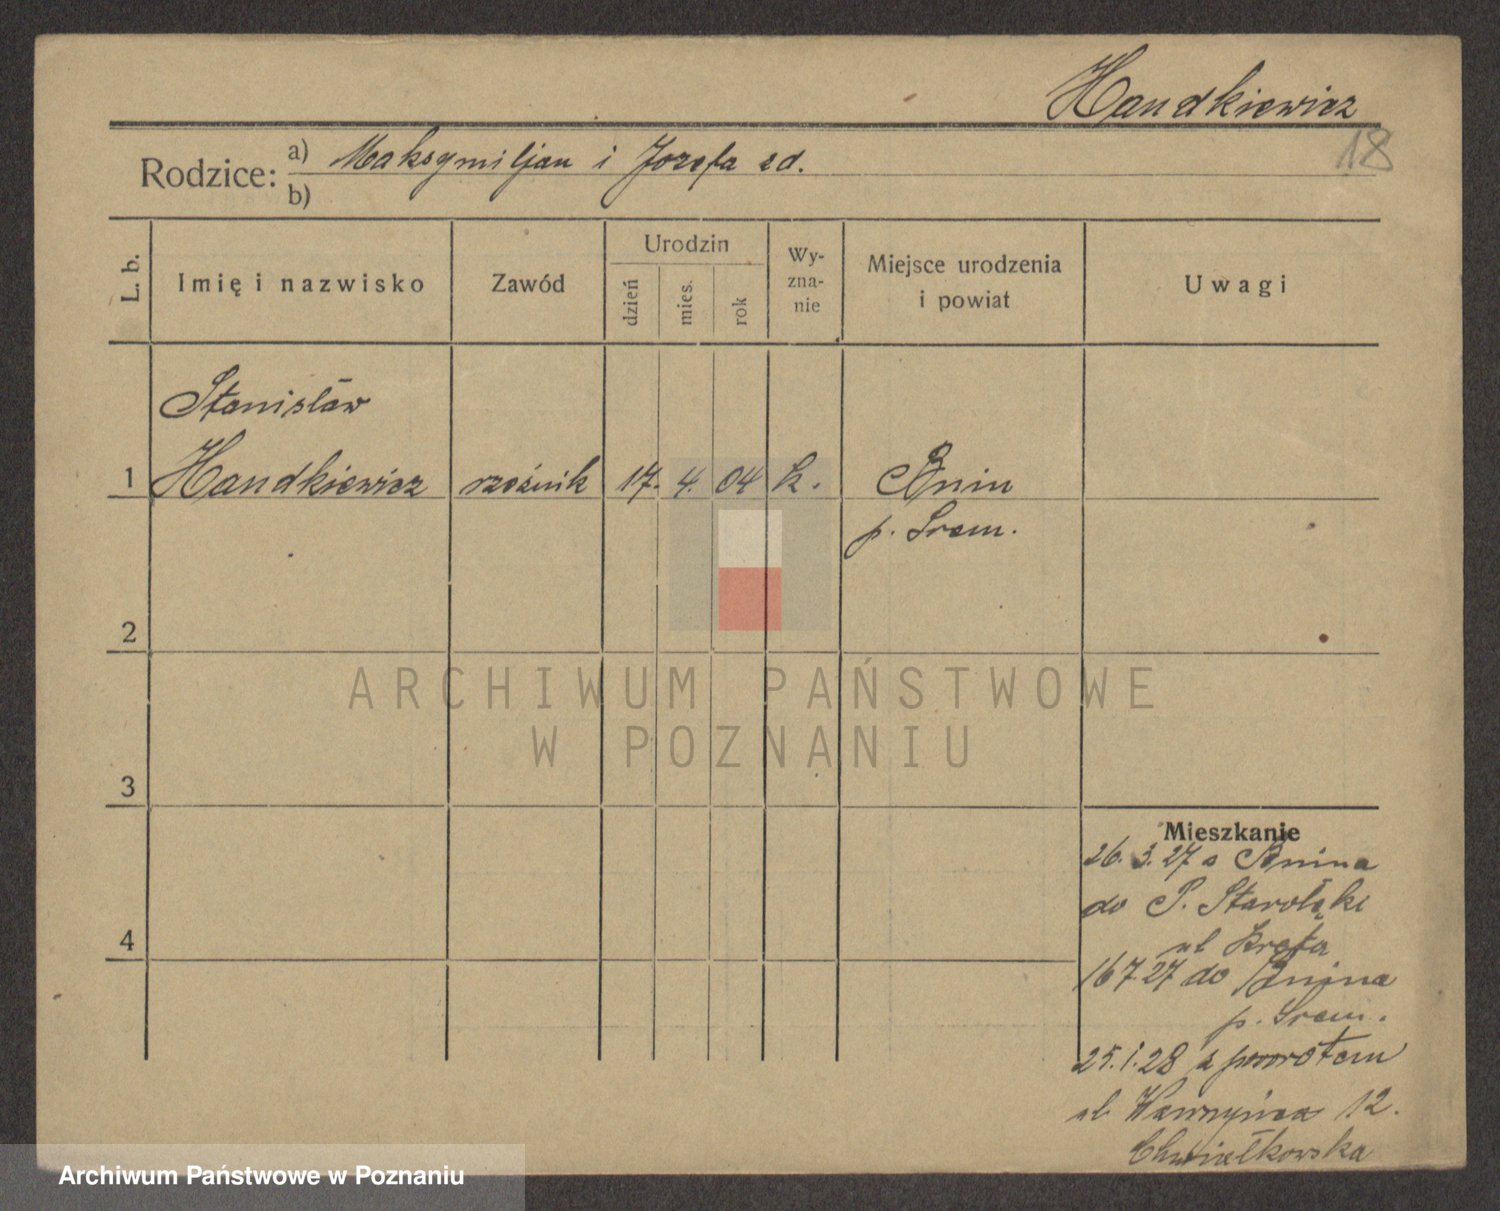 Handkiewicz
18
Rodzice: a) Maksymiljan i Jozefa zd.
b)
L. b.
Imię i nazwisko
Zawód
Urodzin
dzień
mies.
rok
Wy-
zna-
nie
Miejsce urodzenia
i powiat
Uwagi
Stanisław
1 Handkiewicz rzeźnik 17. 4. 04 k. Bnin
p. Śrem.
2
ARCHIWUM PAŃSTWOWE
W POZNANIU
3
Mieszkanie
26. 3. 27 z Bnina
do P. Starołęki
4
ul Kręta
16 7. 27 do Bnina
p. Śrem.
25. 1. 28 z powrotem
ul. Wawrzyńca 12.
Archiwum Państwowe w Poznaniu